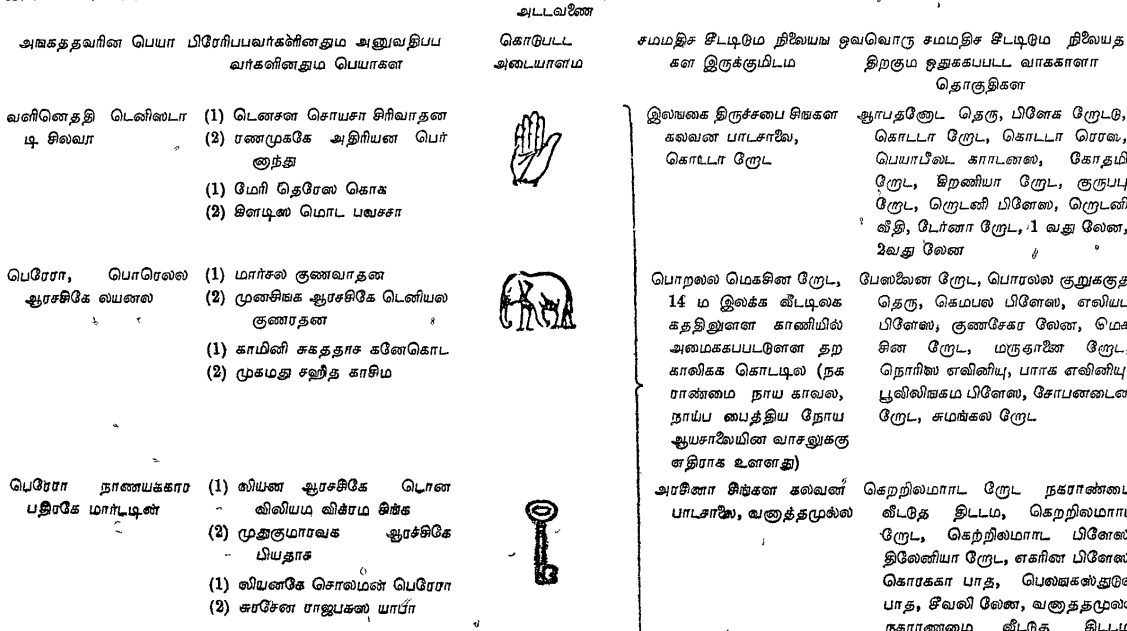 அடடவணை
அஙகததவரின பெயா பிரேரிபபவர்களினதும அனுவதிபப
வர்களினதும பெயாகள
கொடுபடட
அடையாளம
சமமதிச சீடடிடும நிலையங
கள இருக்குமிடம
ஒவவொரு சமமதிச சீடடிடும நிலையத
திறகும ஒதுககபபடட வாககாளா
தொகுதிகள
வளினெததி டெனிஸடா
டி சிலவா
(1) டெனசள சொயசா சிரிவாதன
(2) ரணமுககே அதிரியன பெர்
ணுந்து
(1) மேரி தெரேஸ கொக
(2) கிளடிஸ மொட பவசசா
இலஙகை திருச்சபை சிஙகள
கலவன பாடசாலை,
கொடடா றோட
ஆபதனோட தெரு, பிளேக றோடடு,
கொடடா றோட, கொடடா ரெரஸ,
பெயாபீலட காாடனஸ, கோதமி
றோட, கிறணியா றோட, குருபபு
றோட, றொடனி பிளேஸ, றொடனி
வீதி, டேர்னா றோட, 1 வது லேன,
2வது லேன
பெரேரா, பொரெலல
ஆரசசிகே லயனல
(1) மார்சல குணவாதன
(2) முனசிஙக ஆரசசிகே டெனியல
குணரதன
(1) காமினி சுகததாச கனேகொட
(2) முகமது சஹீத காசிம
பொறலல மெகசின றோட,
14 ம இலக்க வீடடிலக
கததிலுளள காணியில்
அமைககபபடடுளள தற
காலிகக கொடடில (நக
ராண்மை நாய காவல,
நாய்ப பைத்திய நோய
ஆயசாலையின வாசலுககு
எதிராக உளளது)
பேஸலைன றோட, பொரலல குறுககுத
தெரு, கெமபல பிளேஸ, எலியட
பிளேஸ, குணசேகர லேன, மெக
சின றோட, மருதானை றோட,
நொரிஸ எவினியு, பாாக எவினியு,
பூவிலிஙகம பிளேஸ, சோபனடைன
றோட, சுமங்கல றோட
பெரேரா நாணயக்கார
பதிரகே மார்டடின்
(1) லியன ஆரசசிகே டொன
விலியம விக்ரம சிங்க
(2) முதுகுமாரவக ஆரச்சிகே
பியதாச
(1) லியனகே சொலமன் பெரேரா
(2) சுரசேன ராஜபகஸ யாபா
அரசினா சிங்கள கலவன
பாடசாலை, வனாத்தமுல்ல
கெறறிலமாாட றோட நகராண்மை
வீடடுத திடடம, கெறறிலமாாட
றோட, கெற்றிலமாாட பிளேஸ
திலேனியா றோட, எகரின பிளேஸ
கொரககா பாத, பெலஙகஸ்துடுவ
பாத, சீவலி லேன, வனாததமுலல
நகராணமை வீடடுத திடடம